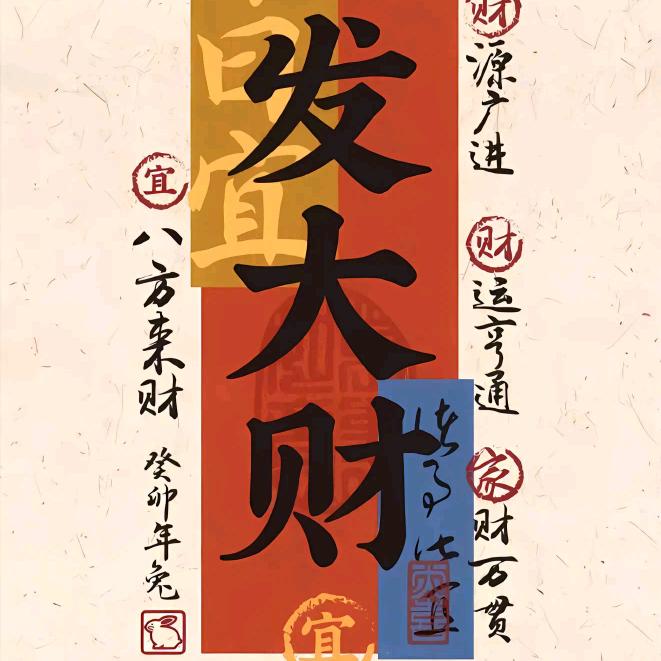 发大财
财源广进
财运亨通
家财万贯
宜
八方来财
癸卯年兔
宜
宜
诸事皆宜